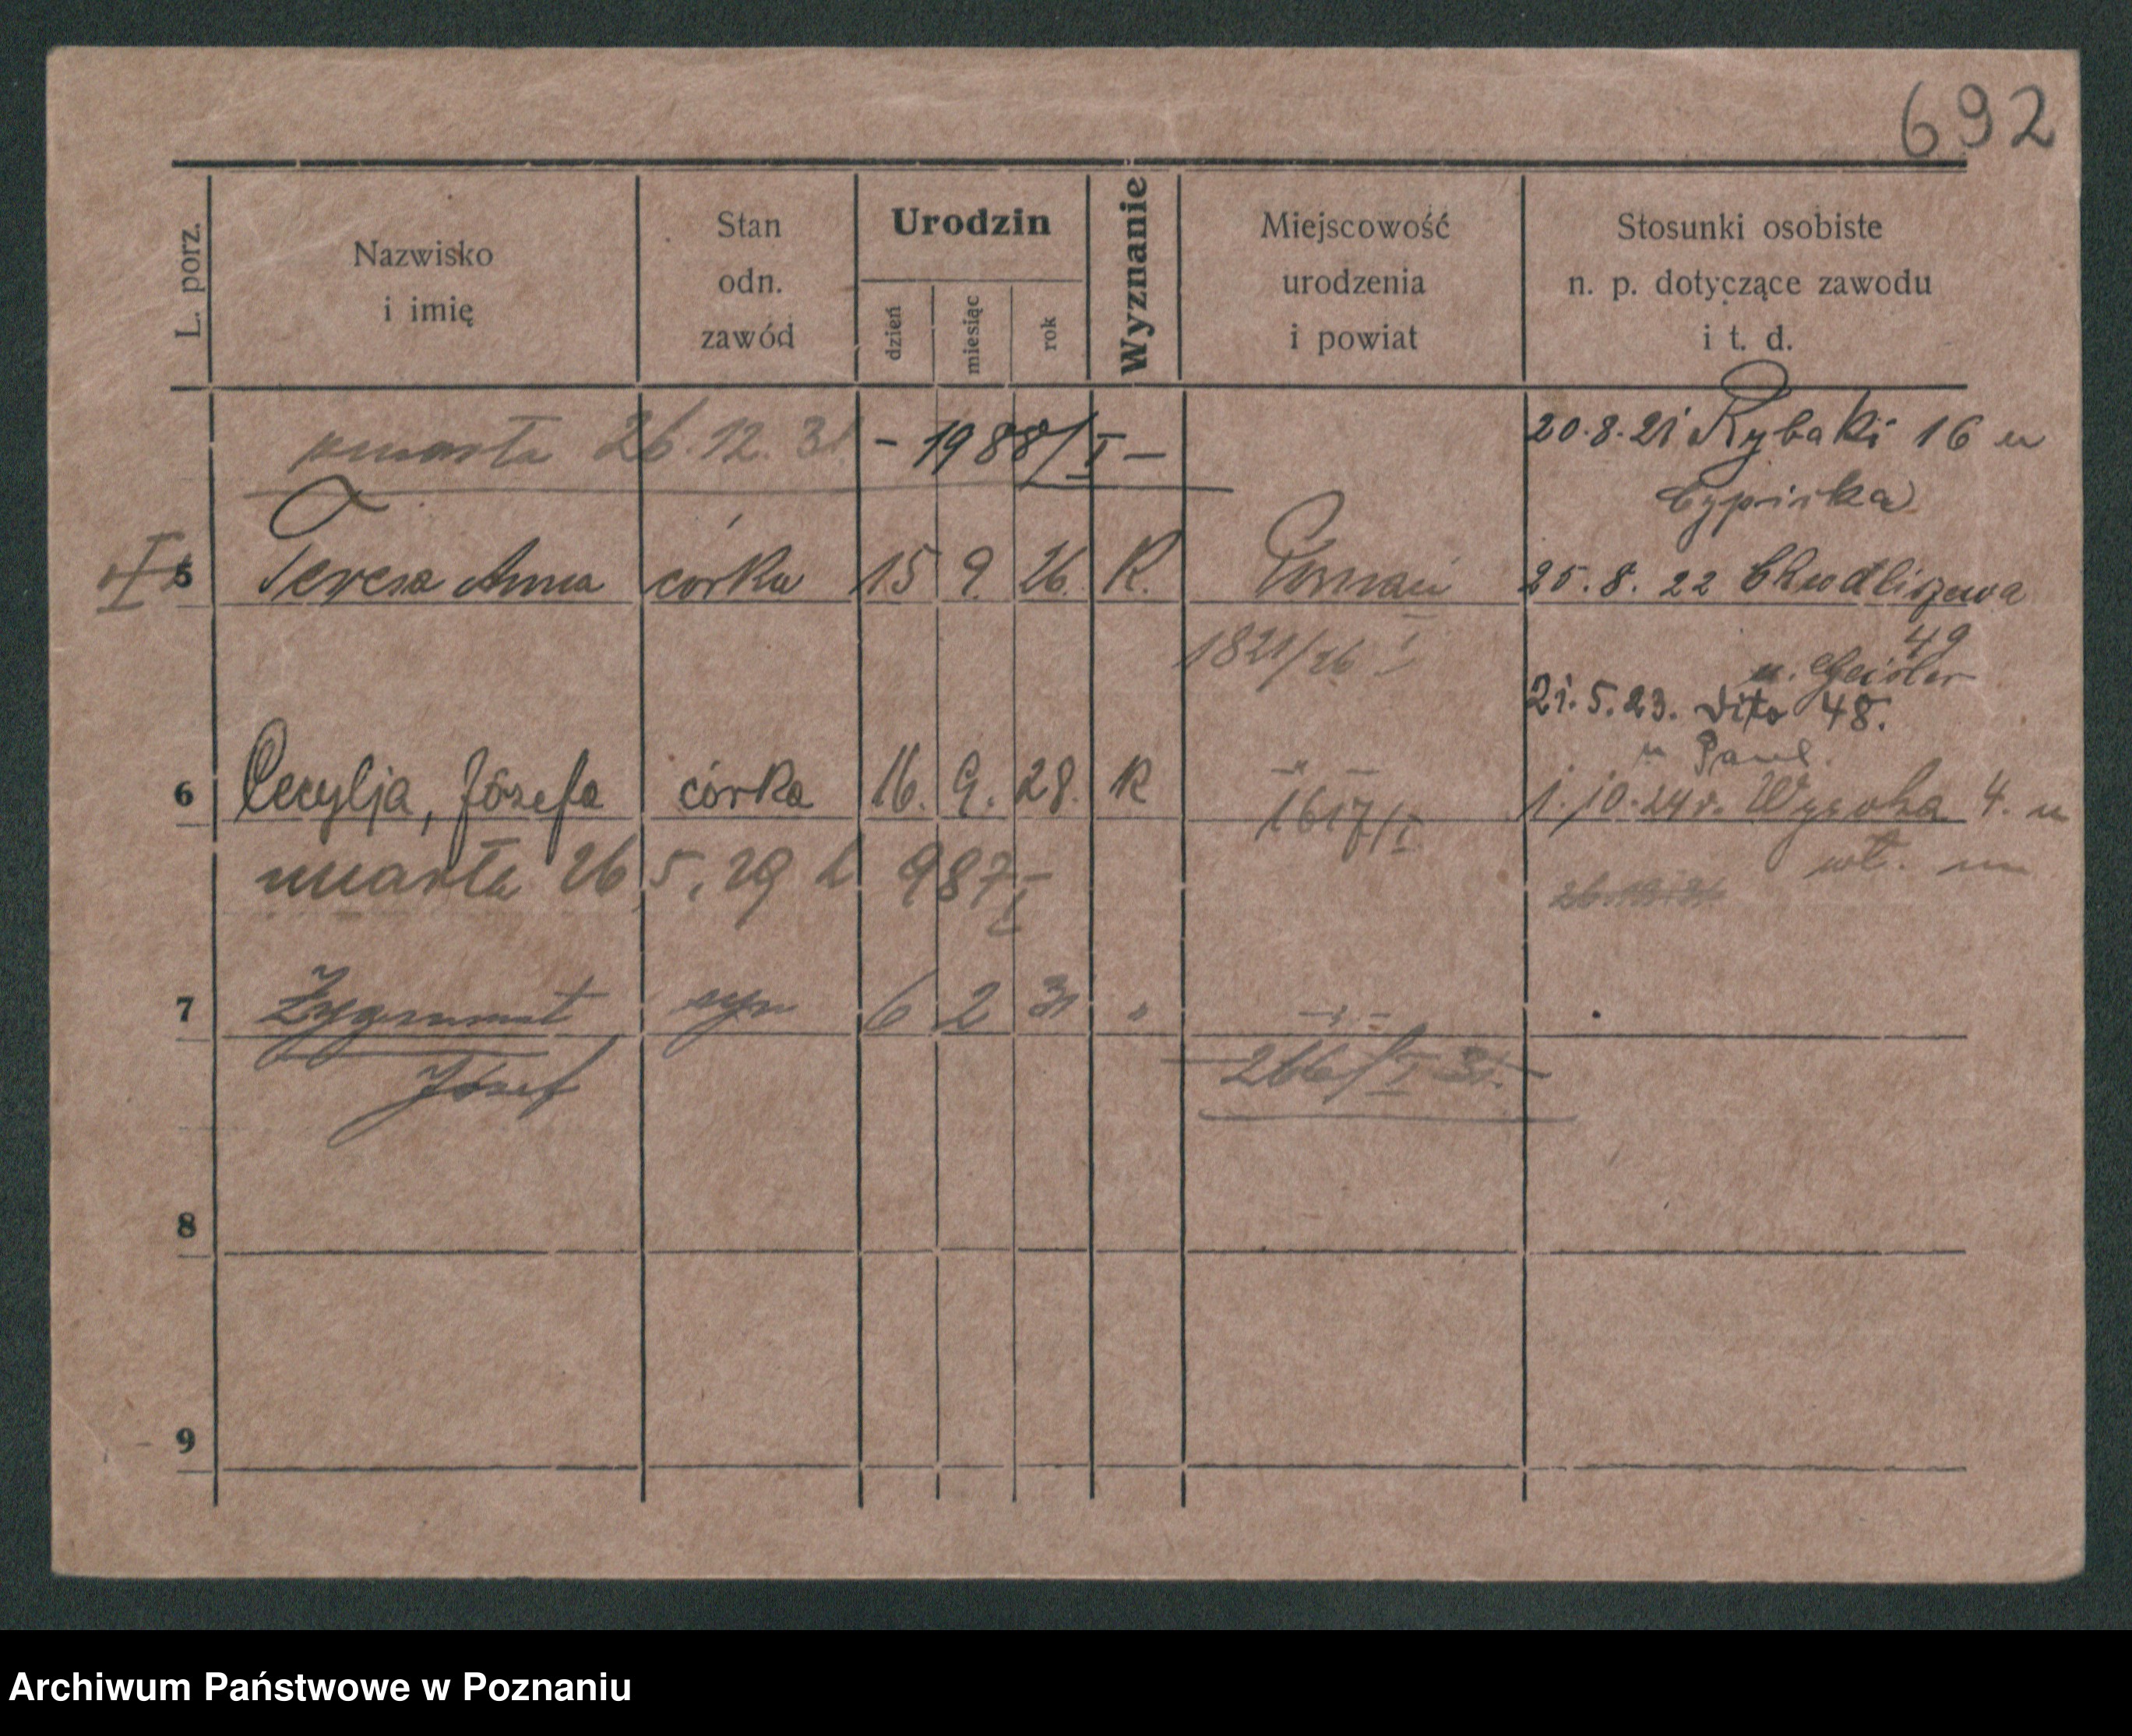 692
L. porz.
Nazwisko
i imię
Stan
odn.
zawód
Urodzin
dzień
miesiąc
rok
Wyznanie
Miejscowość
urodzenia
i powiat
Stosunki osobiste
n. p. dotyczące zawodu
i t. d.
zmarła 26.12.31 - 1988/I -
20.8.21 Rybaki 16 u
Cypirka
5 Teresa Anna córka 15 9. 26. K. Poznań
25.8.22 Chwaliszewo
49
u. Geisler
1821/26 I
21.5.23. dito 48.
u Paul.
6 Cecylja, Józefa córka 16. 9. 28. K —"—
1617/I
1.10.24r. Wysoka 4. u
wł. m
zmarła 26.5.29 L 987 I
7 Zygmunt syn 6 2 31 " —"—
Józef
266/I 31.
8
9
Archiwum Państwowe w Poznaniu